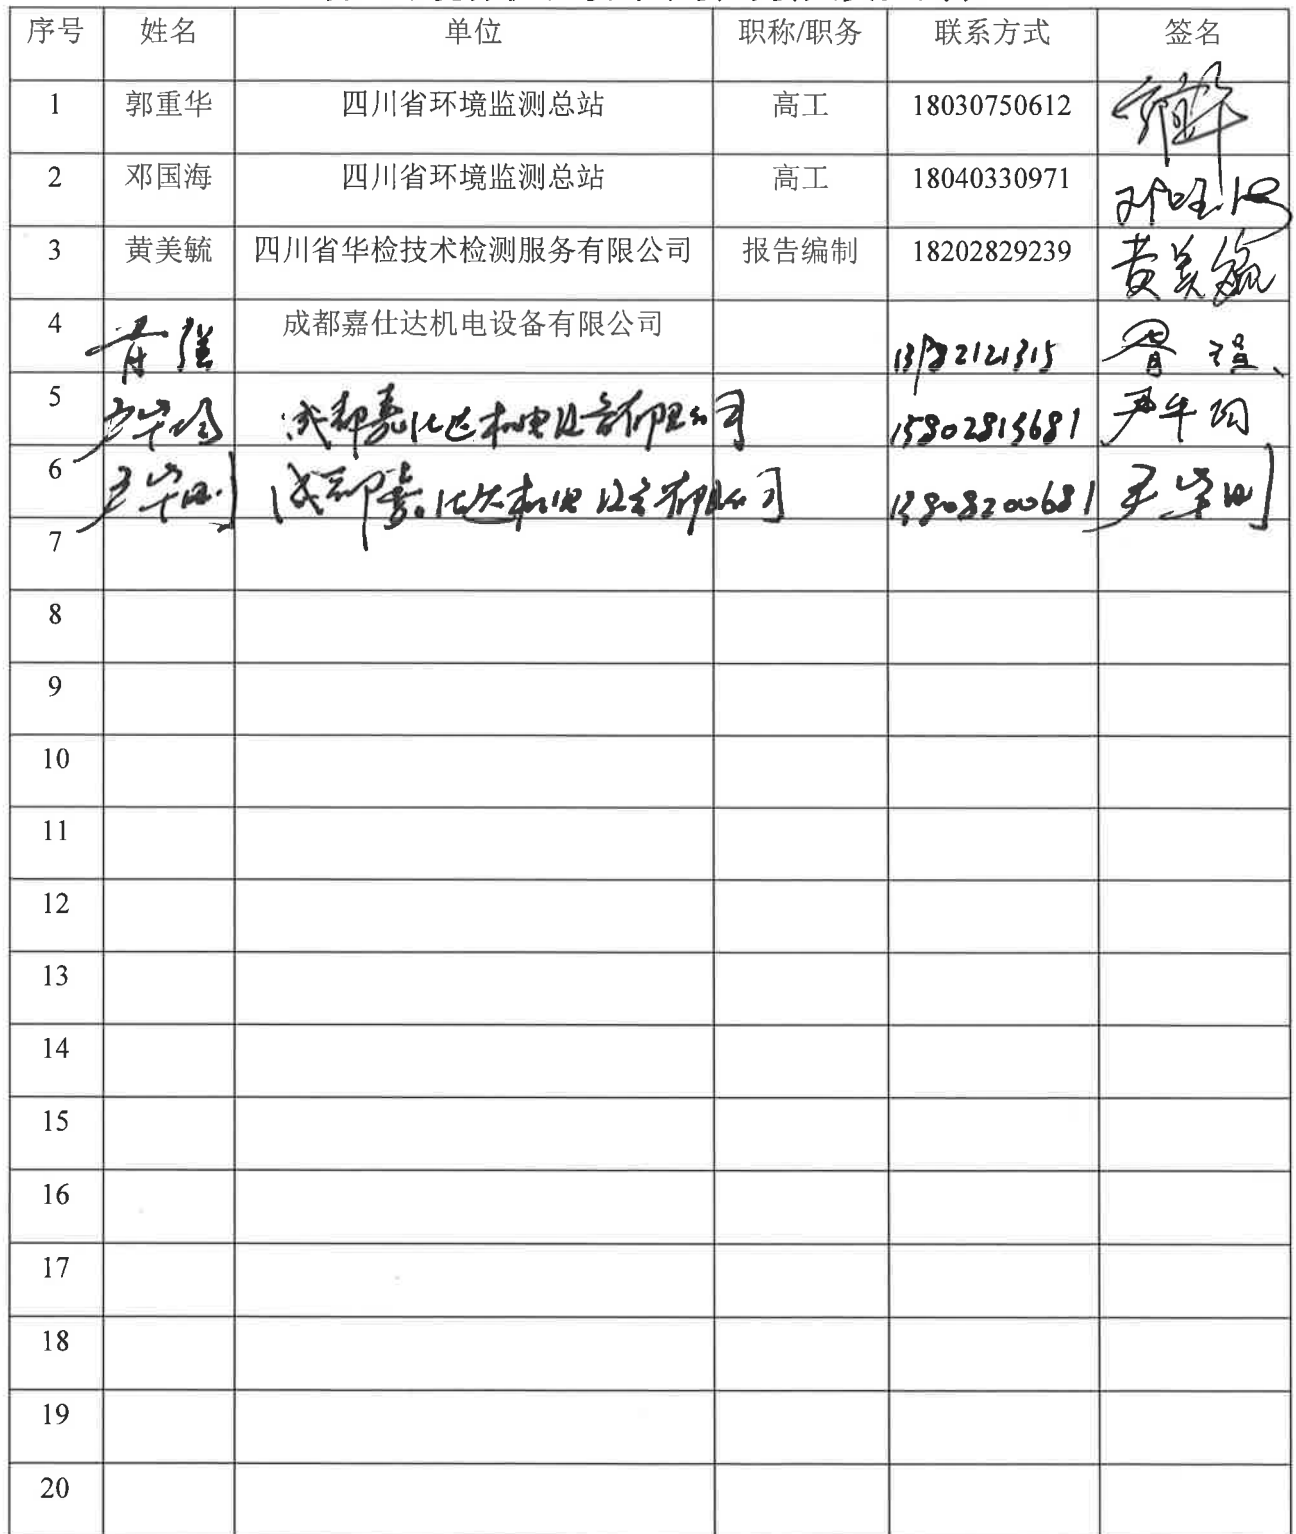 序号 姓名 单位 职称/职务 联系方式 签名
1 郭重华 四川省环境监测总站 高工 18030750612
2 邓国海 四川省环境监测总站 高工 18040330971 邓国海
3 黄美毓 四川省华检技术检测服务有限公司 报告编制 18202829239 黄美毓
4 成都嘉仕达机电设备有限公司
5 成都嘉仕达机电设备有限公司 15802815681
6 成都嘉仕达机电设备有限公司 13808200681
7
8
9
10
11
12
13
14
15
16
17
18
19
20